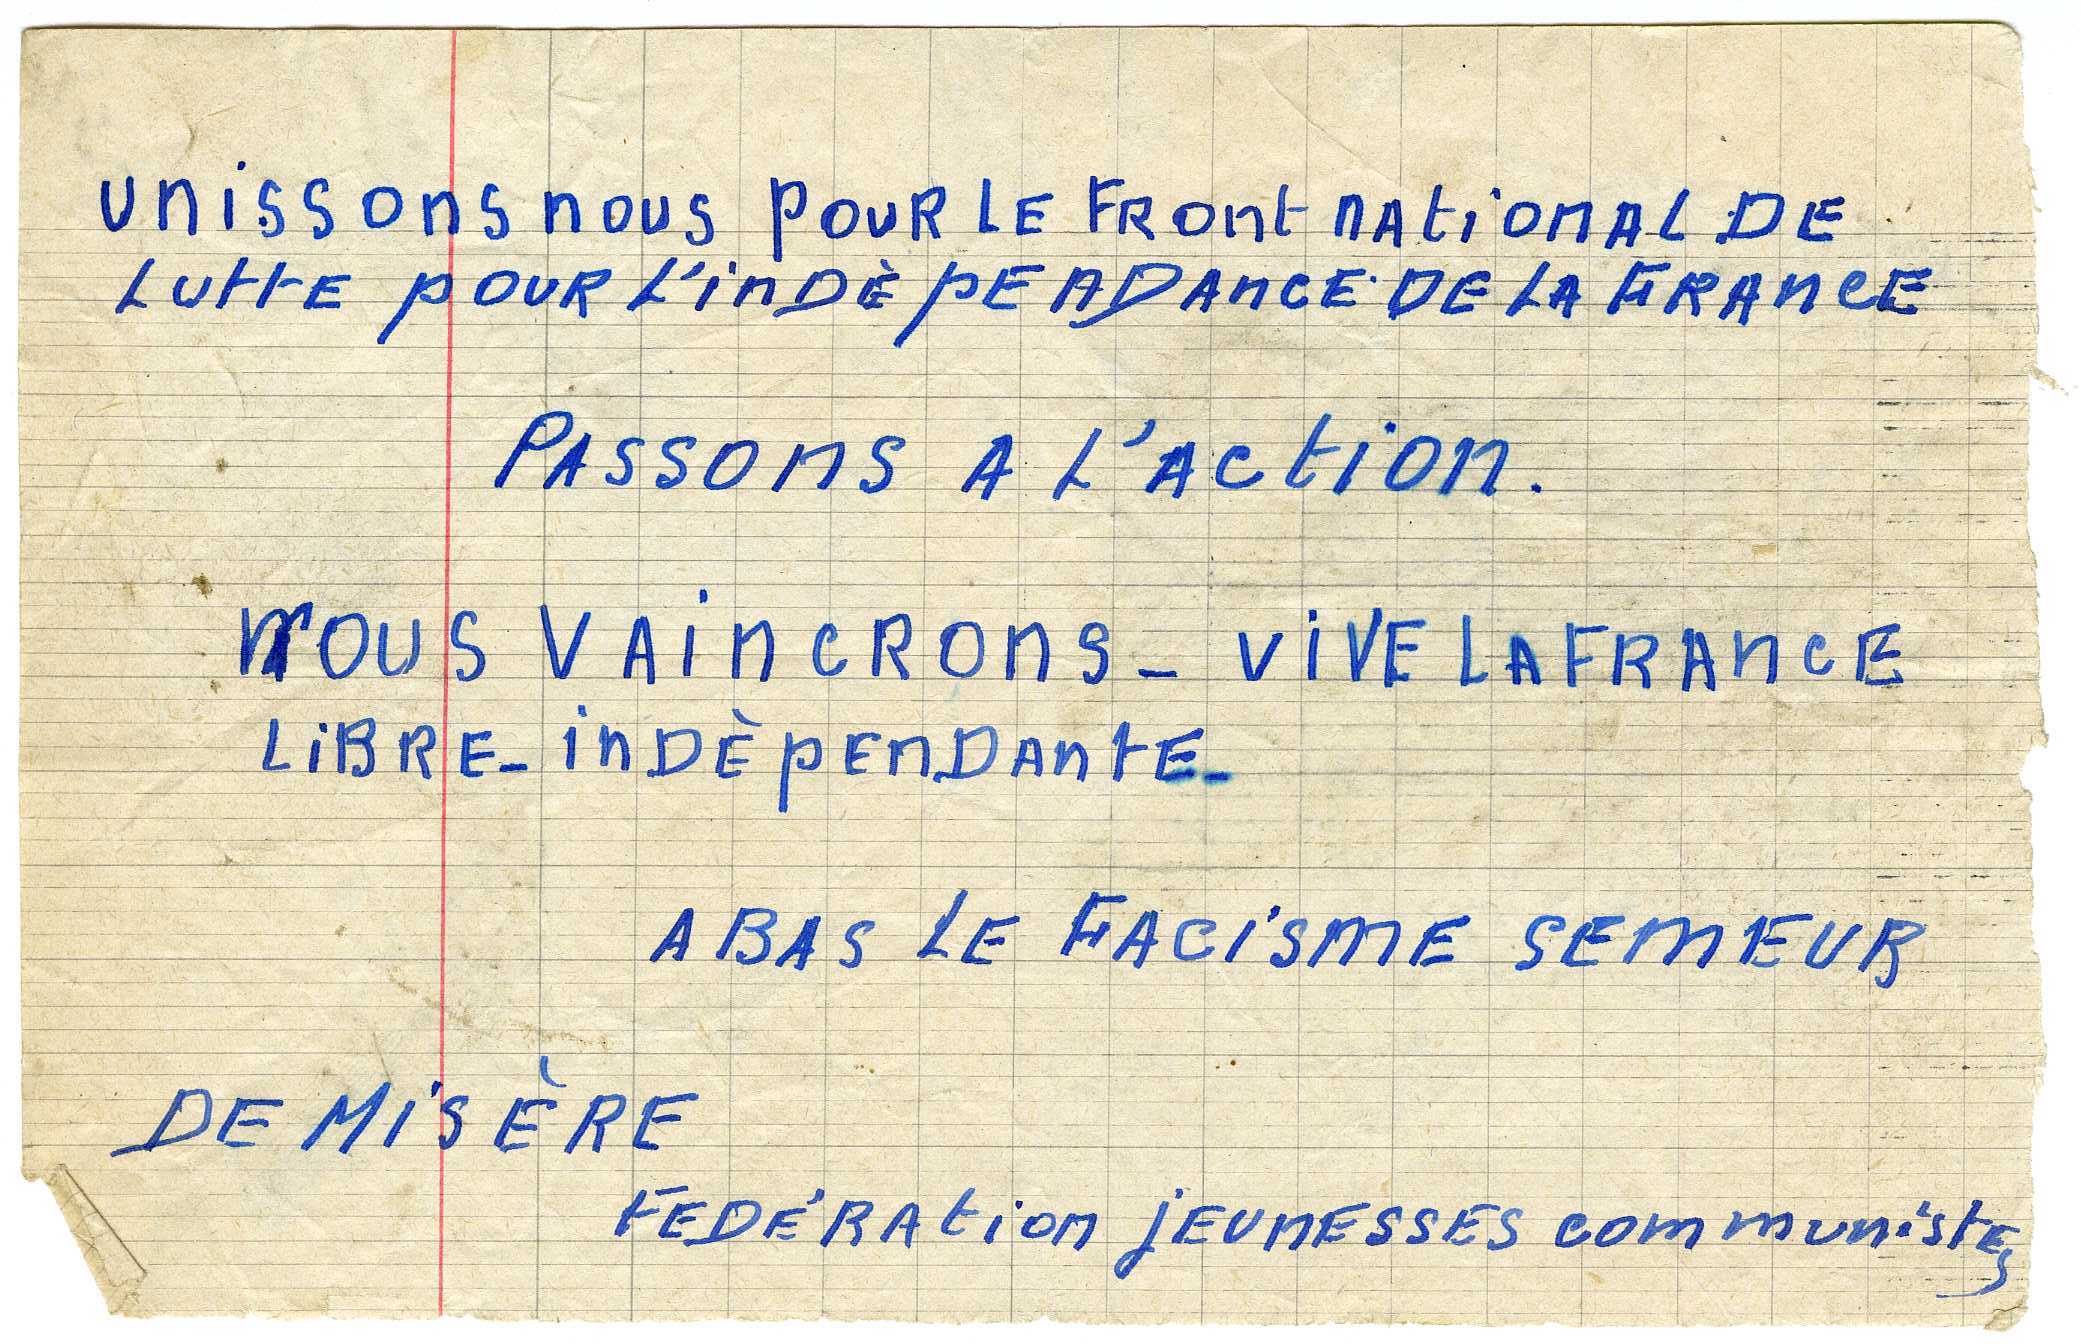 UNISSONS NOUS POUR LE FRONT NATIONAL DE
LUTTE POUR L'INDÈPENDANCE DE LA FRANCE
PASSONS A L'ACTION.
NOUS VAINCRONS_ VIVE LA FRANCE
LIBRE_ INDÈPENDANTE_
A BAS LE FACISME SEMEUR
DE MISÈRE
FEDÉRATION JEUNESSES COMMUNISTES